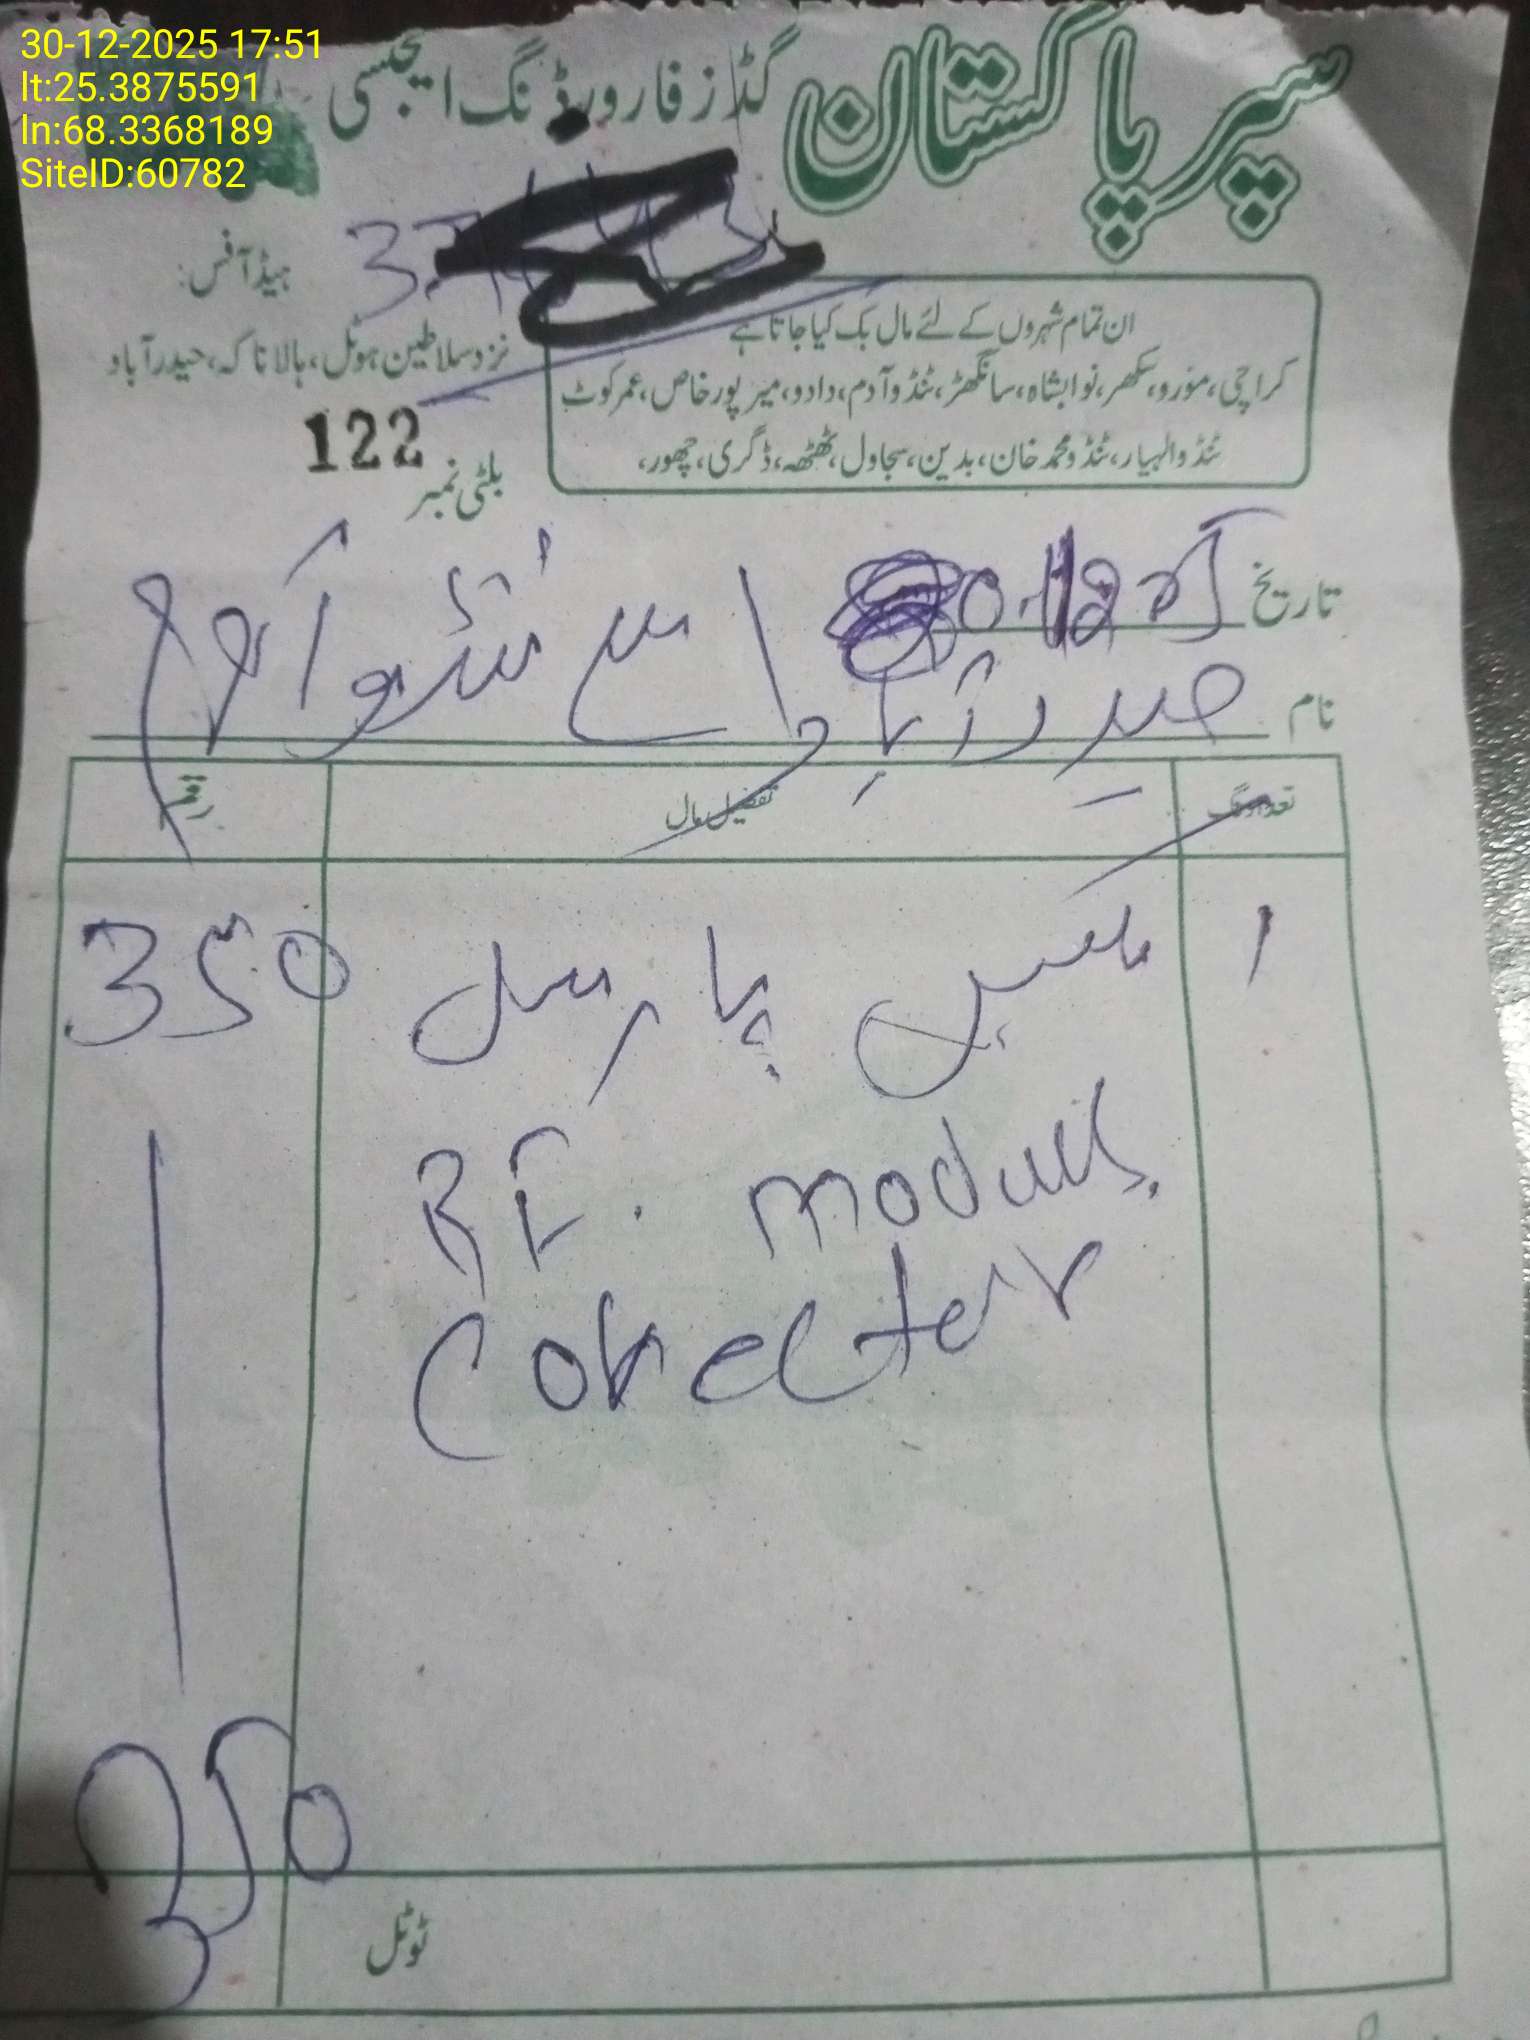 30-12-2025 17:51
lt:25.3875591
ln:68.3368189
SiteID:60782
سپر پاکستان گڈز فارورڈنگ ایجنسی
ہیڈ آفس:
نزد سلاطین ہوٹل، بالا ناکہ، حیدرآباد
ان تمام شہروں کے لئے مال بک کیا جاتا ہے
کراچی، مورو، سکھر، نوابشاہ، سانگھڑ، ٹنڈوآدم، دادو، میرپورخاص، عمرکوٹ
ٹنڈوالہیار، ٹنڈومحمدخان، بدین، سجاول، ٹھٹھہ، ڈگری، چھور،
بلٹی نمبر 122
تاریخ
نام حیدرآباد سے ٹنڈوآدم
تعداد نگ تفصیل مال رقم
1 پارسل 350
RF. Moduls.
Conecter
350
ٹوٹل